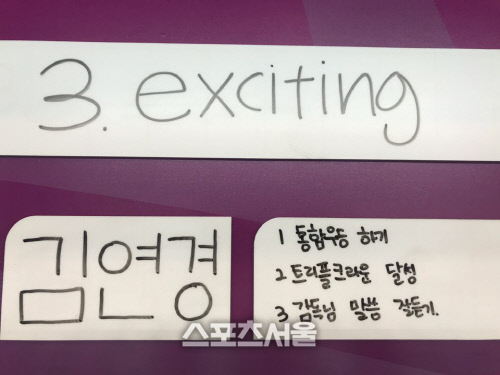 3. exciting
김연경
1 통합우승 하기
2 트리플크라운 달성
3 감독님 말씀 잘듣기.
스포츠서울